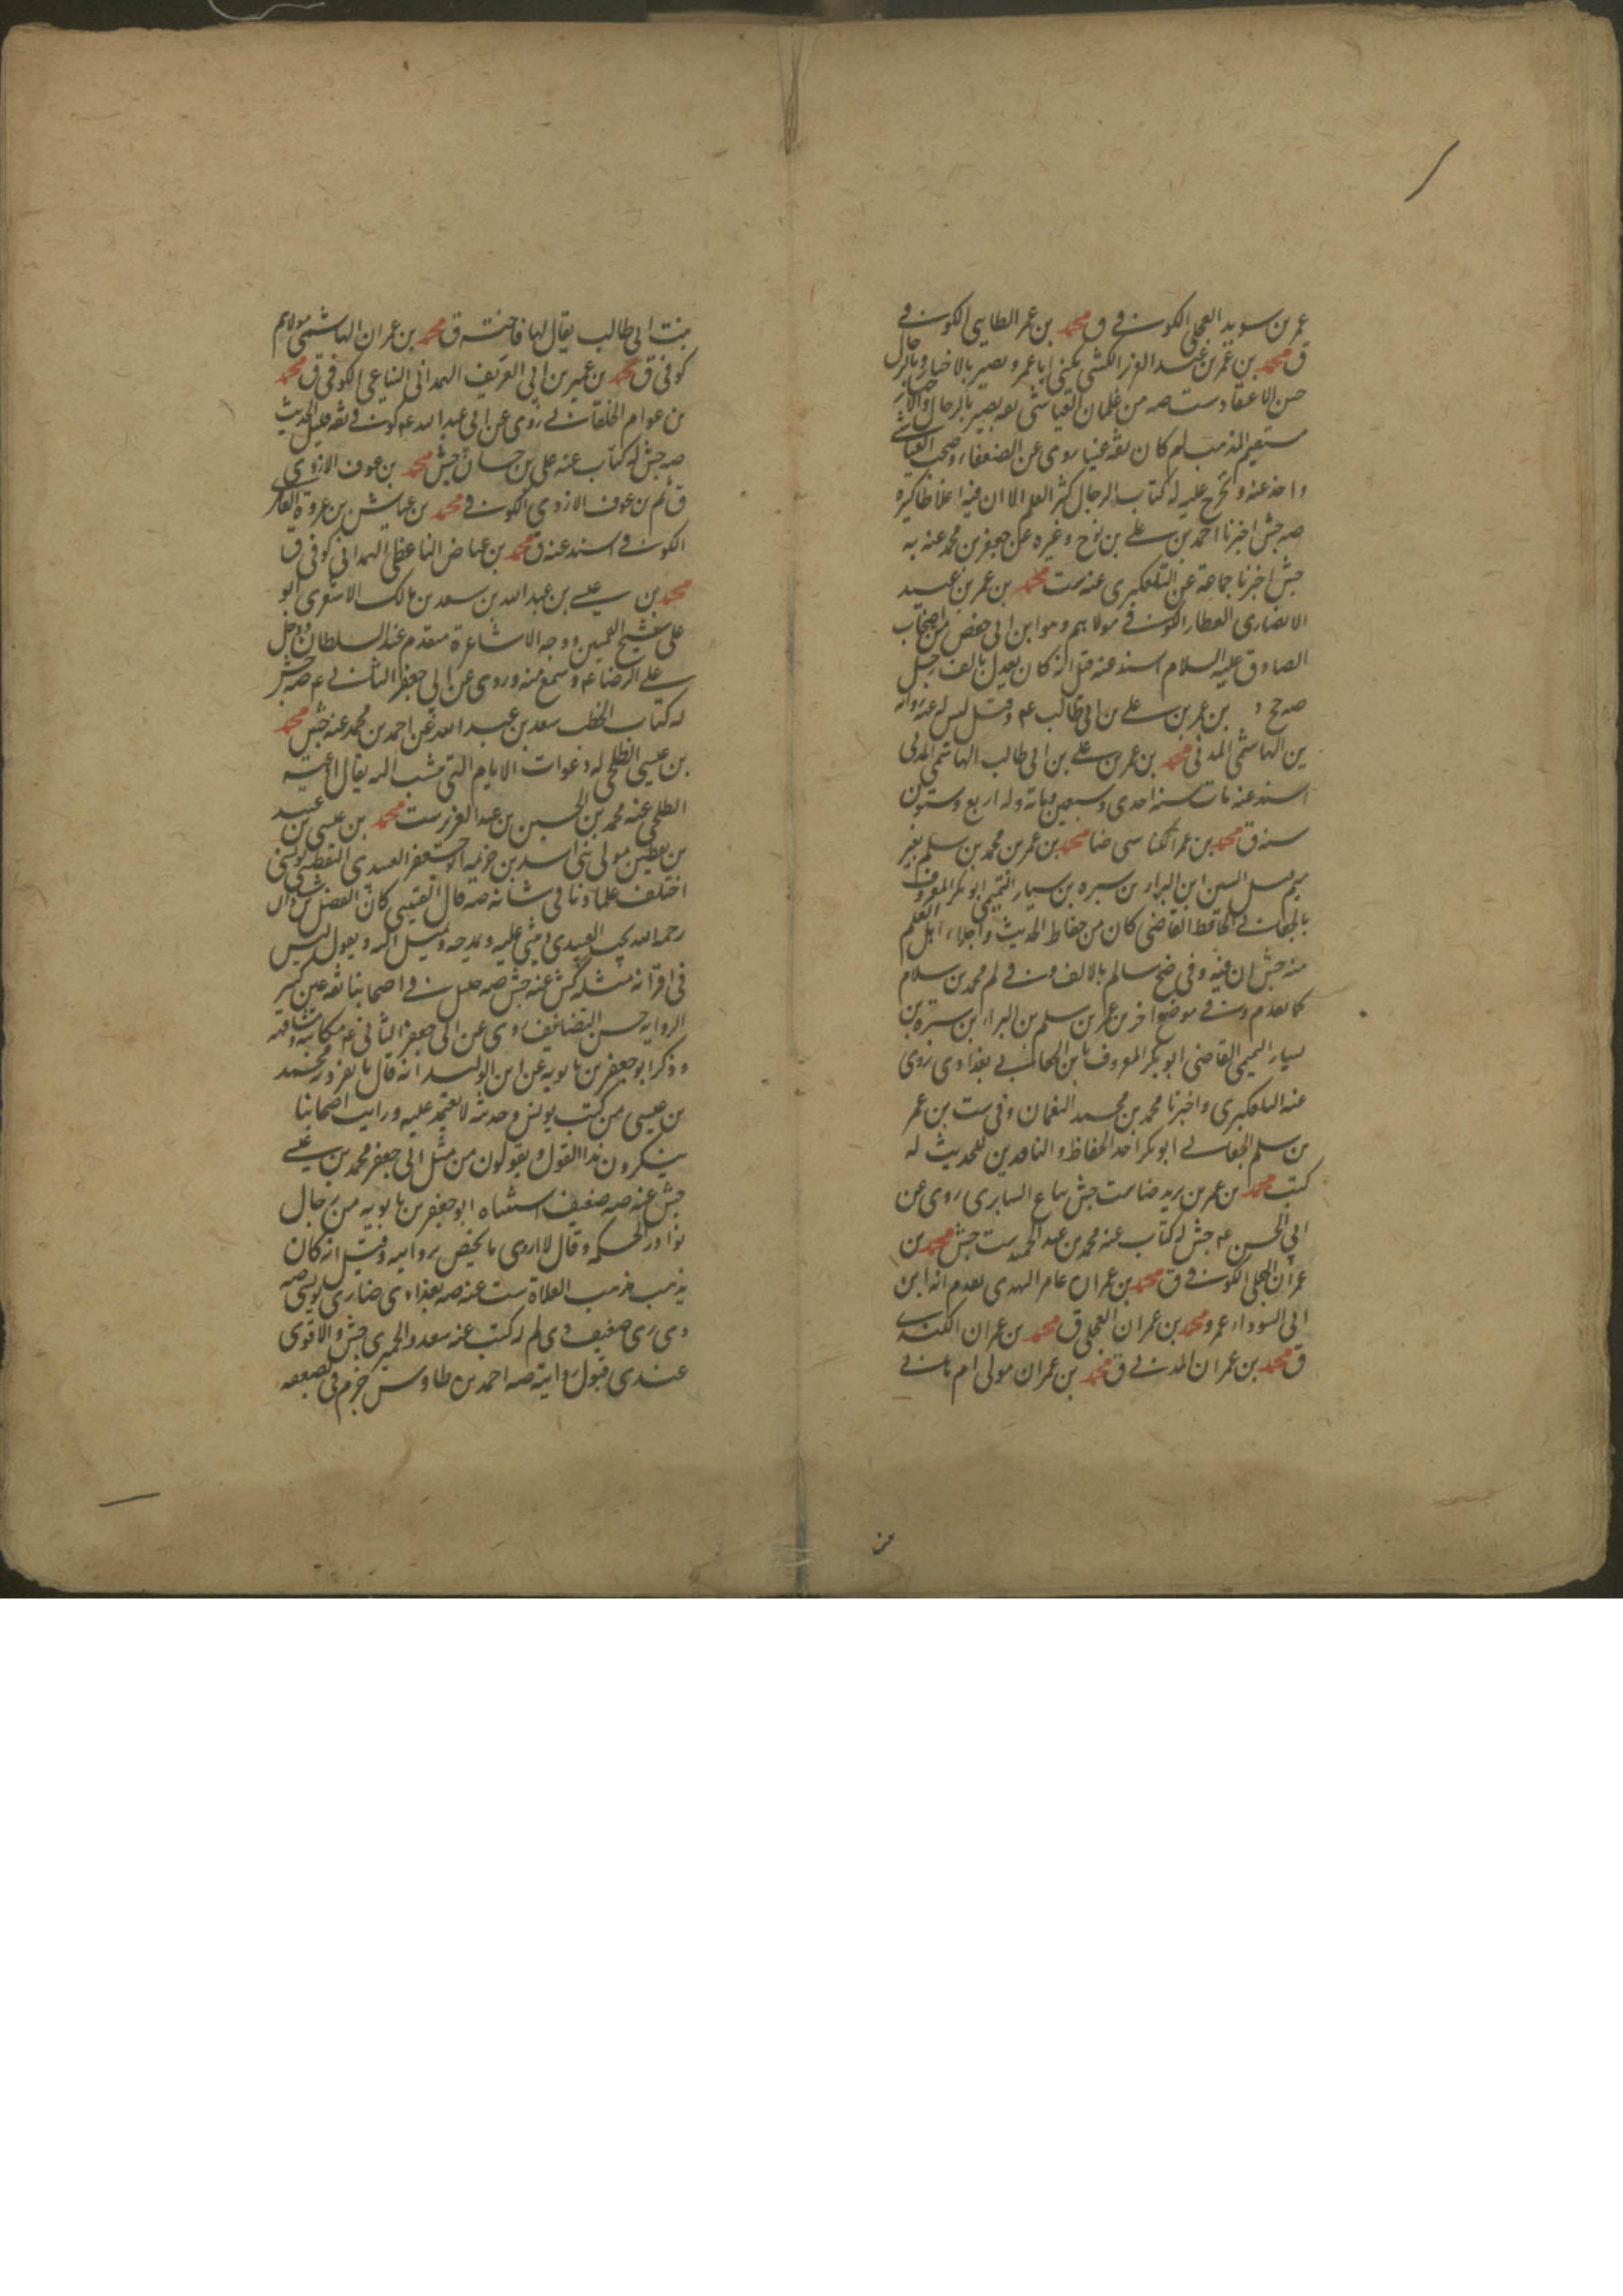 عمر بن سويد العجلي الكوفي ق محمد بن عمر الطائي الكوفي
ق محمد بن عمر بن عبد العزيز الكشي يكنى ابا عمرو بصير بالاخبار وبالرجال
حسن الاعتقاد ست صه من غلمان العياشي ثقه بصير بالرجال والاخبار
مستقيم المذهب لم كان ثقه عينا روى عن الضعفاء وصحب العياشي
واخذ عنه وتخرج عليه له كتاب الرجال كثير العلم الا ان فيه اغلاطا كثيره
صه جش اخبرنا احمد بن علي بن نوح وغيره عن جعفر بن محمد عنه به
جش اخبرنا جماعة عن التلعكبرى عنه ست محمد بن عمر بن عبيد
الانصارى العطار الكوفي مولاهم وهو ابن ابي حفص من اصحاب
الصادق عليه السلام اسند عنه قيل انه كان يعدل بالف رجل
صه جخ د بن عمر بن علي بن ابي طالب ع وقيل ليس له عنه روايه
ين الهاشمي المدني محمد بن عمر بن علي بن ابي طالب الهاشمي المدني
اسند عنه مات سنه احدى وسبعين ومائة وله اربع وستون
سنه ق محمد بن عمر الكناسي ضا محمد بن عمر بن محمد بن سلم بغير
ميم قبل السين ابن البراء بن سبره بن سيار التميمي ابو بكر المعروف
بالجعابي الحافظ القاضي كان من حفاظ الحديث واجلاء اهل العلم
منه جش ان فيه وفي ضح سالم بالالف وفي لم محمد بن سلام
كما تقدم وفي موضع اخر بن عمر بن سلم بن البراء بن سبره بن
سيار التميمي القاضي ابو بكر المعروف بابن الجعابي بغدادى روى
عنه التلعكبرى واخبرنا محمد بن محمد النعمان وفي ست بن عمر
بن سلم الجعابي ابو بكر احد الحفاظ والناقدين للحديث له
كتب محمد بن عمر بن يزيد ضا ست جش بياع السابرى روى عن
ابي الحسن ع جش له كتاب عنه محمد بن عبد الحميد ست جش محمد بن
عمران البجلي الكوفي ق محمد بن عمران عامر النهدى تقدم انه ابن
ابي السوداء عمرو محمد بن عمران العجلي ق محمد بن عمران الكندى
ق محمد بن عمران المدني ق محمد بن عمران مولى ام هاني
من
بنت ابي طالب يقال لها فاخته ق محمد بن عمران الهاشمي مولاهم
كوفي ق محمد بن عمير بن ابي العريف الهمداني الناعي الكوفي ق محمد
بن عوام الخلقاني روى عن ابي عبد الله ع كوفي ثقه قليل الحديث
صه جش له كتاب عنه علي بن حسان جش محمد بن عوف الازدى
ق لم بن عوف الازدى الكوفي محمد بن عياش بن عروة العامرى
الكوفي اسند عنه ق محمد بن عياض الناعظي الهمداني كوفي ق
محمد بن عيسى بن عبد الله بن سعد بن مالك الاشعرى ابو
علي شيخ القميين ووجه الاشاعرة متقدم عند السلطان ودخل
على الرضا ع وسمع منه وروى عن ابي جعفر الثاني ع صه جش
له كتاب الخطب سعد بن عبد الله عن احمد بن محمد عنه جش محمد
بن عيسى الطلحي له دعوات الايام التي تنسب اليه يقال ادعيه
الطلحي عنه محمد بن الحسين بن عبد العزيز ست محمد بن عيسى بن عبيد
بن يقطين مولى بني اسد بن خزيمه ابو جعفر العبيدى اليقطيني يونسي
اختلف علماونا في شانه صه قال القتيبي كان الفضل بن شاذان
رحمه الله يحب العبيدى ويثني عليه ويمدحه ويميل اليه ويقول ليس
في اقرانه مثله كش عنه جش صه جليل في اصحابنا ثقه عين كثير
الروايه حسن التصانيف روى عن ابي جعفر الثاني ع مكاتبه ومشافهه
وذكر ابو جعفر بن بابويه عن ابن الوليد انه قال ما تفرد به محمد
بن عيسى من كتب يونس وحديثه لا يعتمد عليه ورايت اصحابنا
ينكرون هذا القول ويقولون من مثل ابي جعفر محمد بن عيسى
جش عنه صه ضعيف استثناه ابو جعفر بن بابويه من رجال
نوادر الحكمه وقال لا اروى ما يختص بروايته وقيل انه كان
يذهب مذهب الغلاة ست عنه صه بغدادى ضا رى يونسي صه
دى رى ضعيف دى لم له كتب عنه سعد والحميرى جش والاقوى
عندى قبول روايته صه احمد بن طاوس جزم في تضعيفه